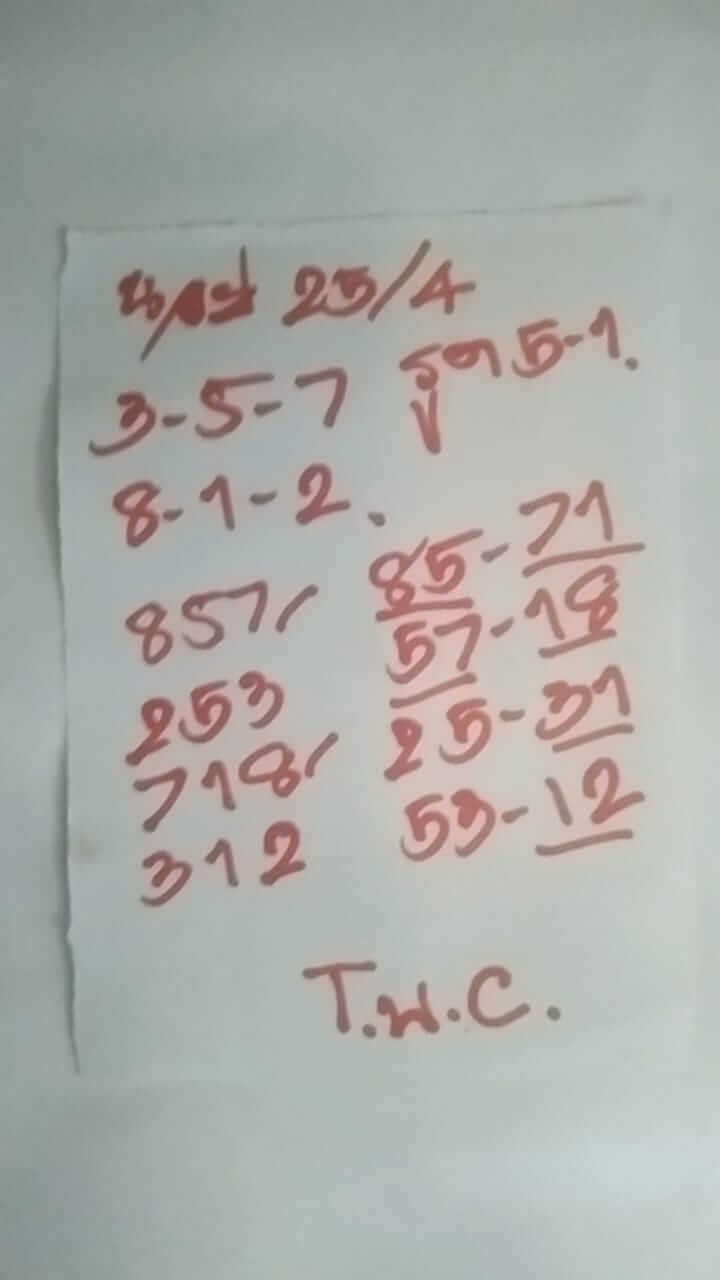 25/4
3-5-7 รูด 5-1.
8-1-2.
857/ 85-71
253 57-18
718/ 25-31
312 53-12
T.w.C.